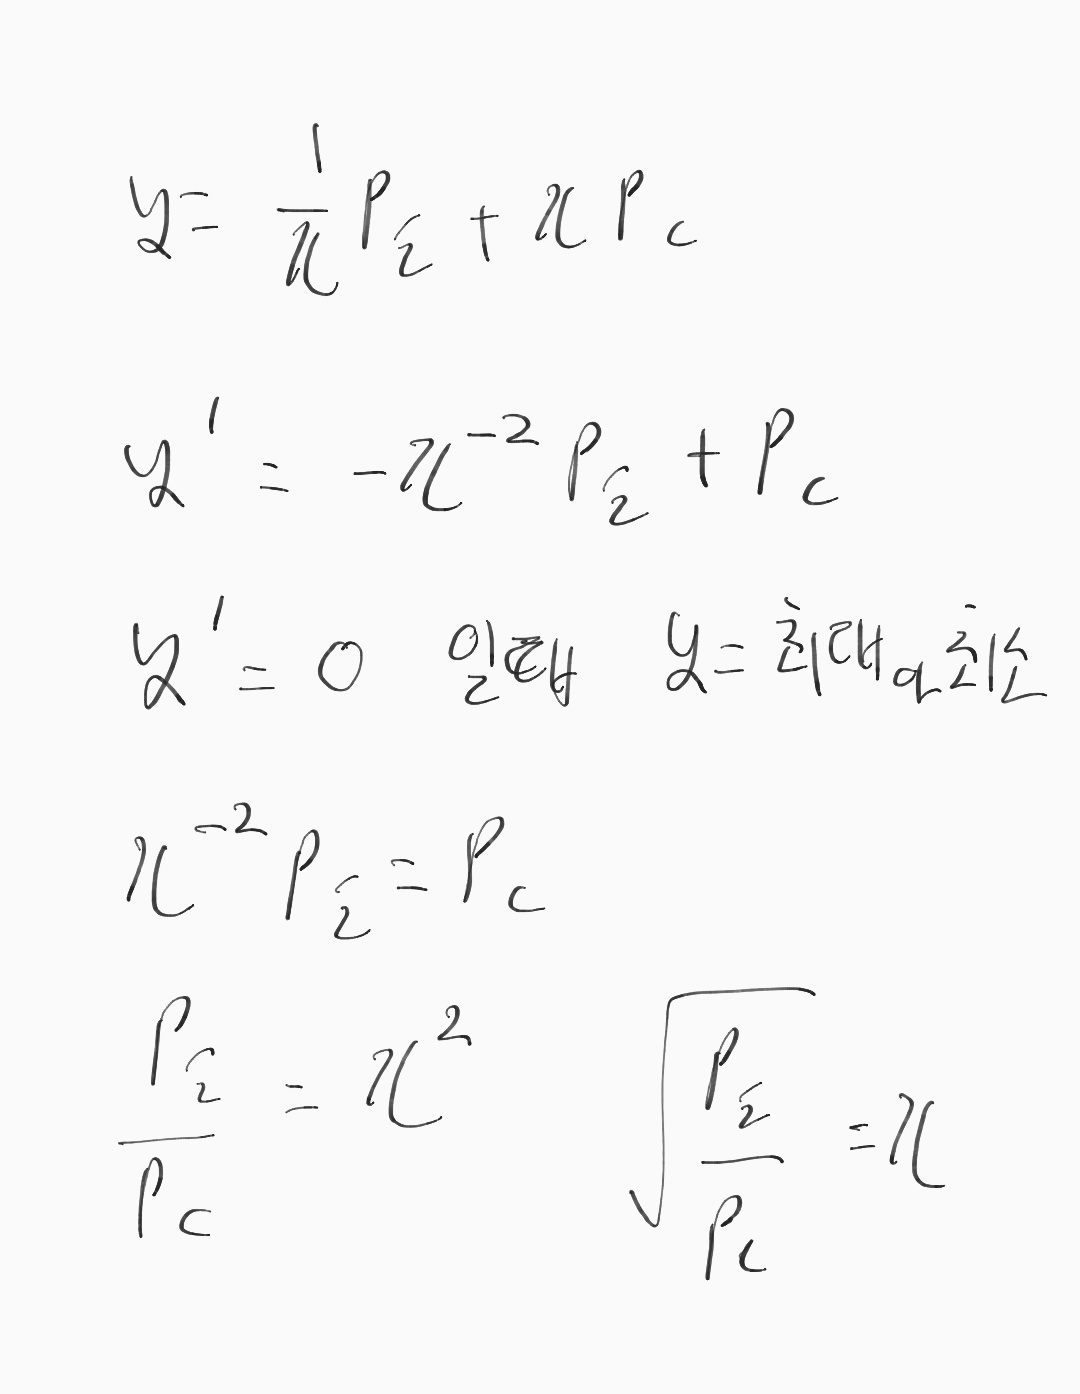 y = 1/x P_i + x P_c
y' = -x^-2 P_i + P_c
y' = 0 일때 y = 최대 or 최소
x^-2 P_i = P_c
P_i / P_c = x^2 √(P_i / P_c) = x